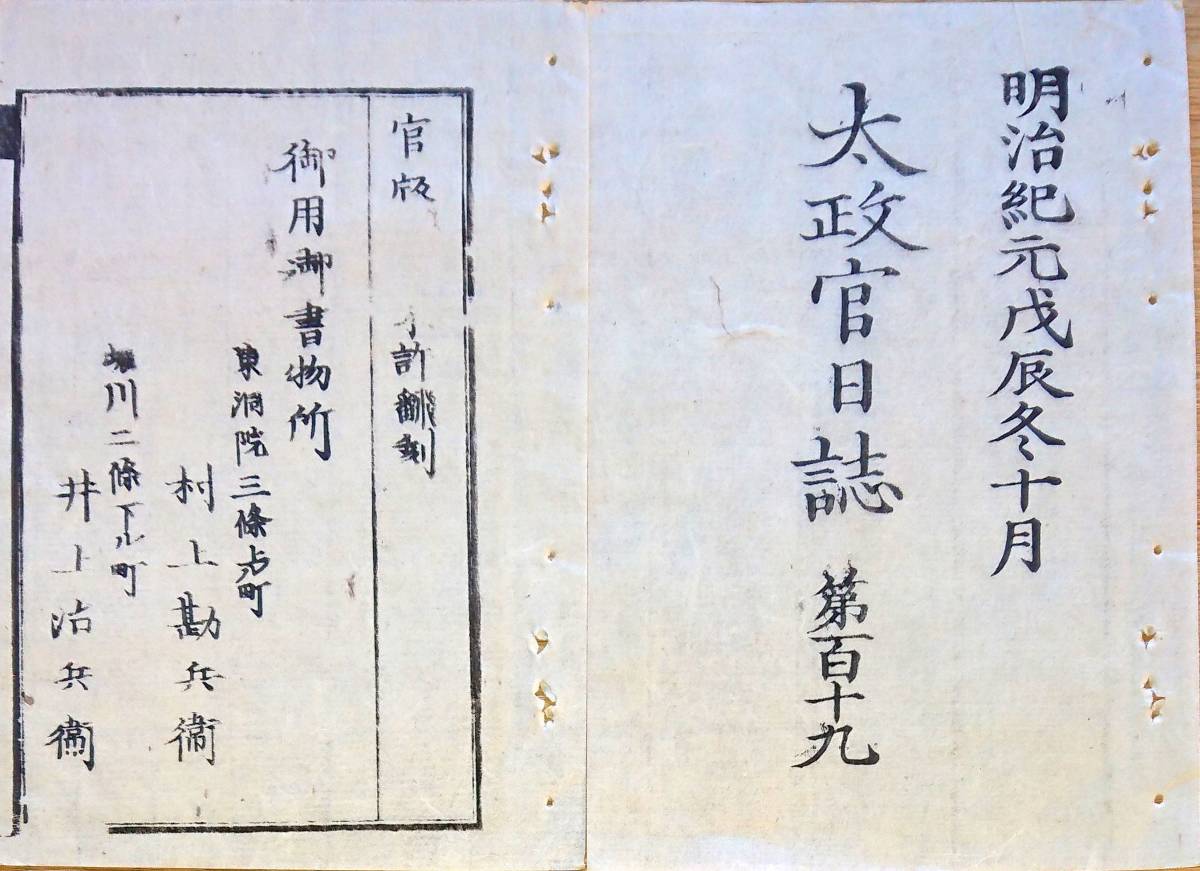 明治紀元戊辰冬十月
太政官日誌 第百十九
官版 許翻刻
御用御書物所
東洞院三條上ル町
村上勘兵衛
堀川二條下ル町
井上治兵衛